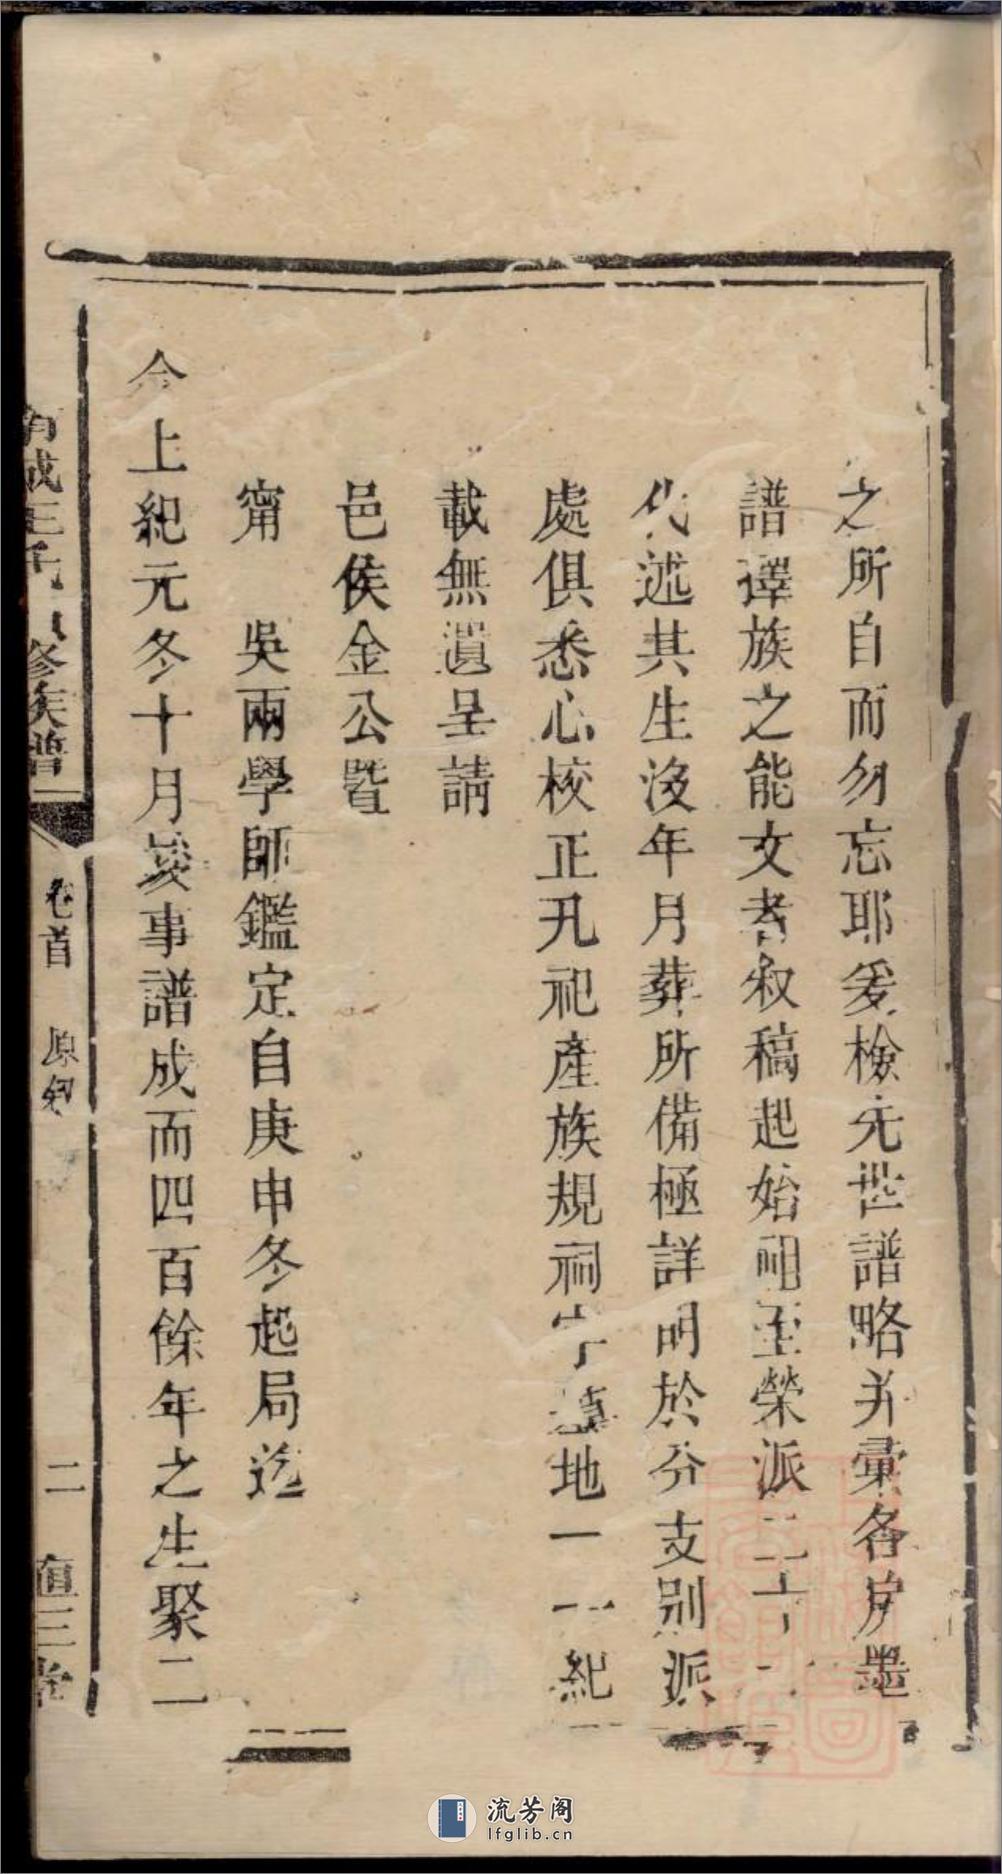 之所自而勿忘耶爰檢先世譜略并彙各房墨
譜擇族之能文者叙稿起始祖至榮派二十二
代述其生沒年月葬所備極詳明於分支别派
處俱悉心校正凡祀產族規祠宇墓地一一紀
載無遺呈請
邑侯金公暨
甯　吳兩學師鑑定自庚申冬起局迄
今上紀元冬十月竣事譜成而四百餘年之生聚二
南城王氏 修族譜
卷首　原叙
二　植三堂
流芳阁
lfglib.cn